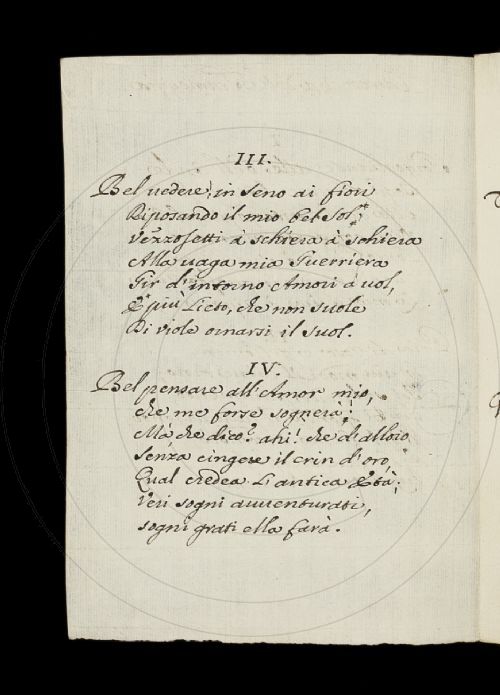 III.
Bel uedere, in seno ai fiori
Riposando il mio bel Sol,
Vezzosetti à schiera à schiera
Alla uaga mia Guerriera
Gir d'intorno Amori à uol,
E più Lieto, che non suole
Di viole ornarsi il suol.
IV.
Bel pensare all'Amor mio,
che me forse sognerà;
Mà che dico? ahi! che d'alloro
Senza cingere il crin d'oro,
Qual credea L'antica Età;
Veri sogni auuenturati,
sogni grati ella farà.